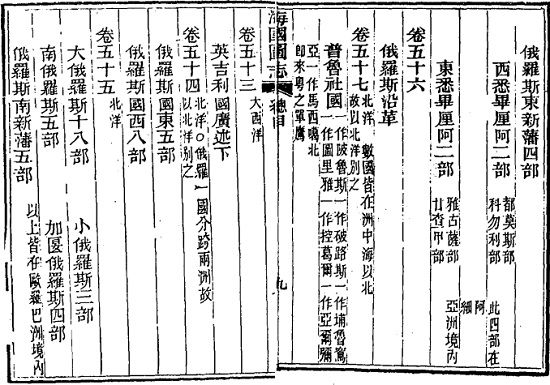 俄羅斯東新藩四部
西悉畢厘阿二部 都莫斯部 科勿利部 此四部在阿
東悉畢厘阿二部 雅古薩部 甘查甲部 細亞洲境內
卷五十六
俄羅斯沿革
卷五十七 北洋 數國皆在洲中海以北
故以北洋別之
普魯社國 一作陂魯斯一作破路斯一作埔魯寫
一作圖里雅一作控葛爾一作亞爾彌
亞一作馬西噶北
即來粵之單鷹
海國圖志 總目 九
卷五十三 大西洋
英吉利國廣述下
卷五十四 北洋○俄羅一國分跨兩洲故
以北洋別之
俄羅斯國東五部
俄羅斯國西八部
卷五十五 北洋
大俄羅斯十八部 小俄羅斯三部
南俄羅斯五部 加匽俄羅斯四部
俄羅斯南新藩五部 以上皆在歐羅巴洲境內